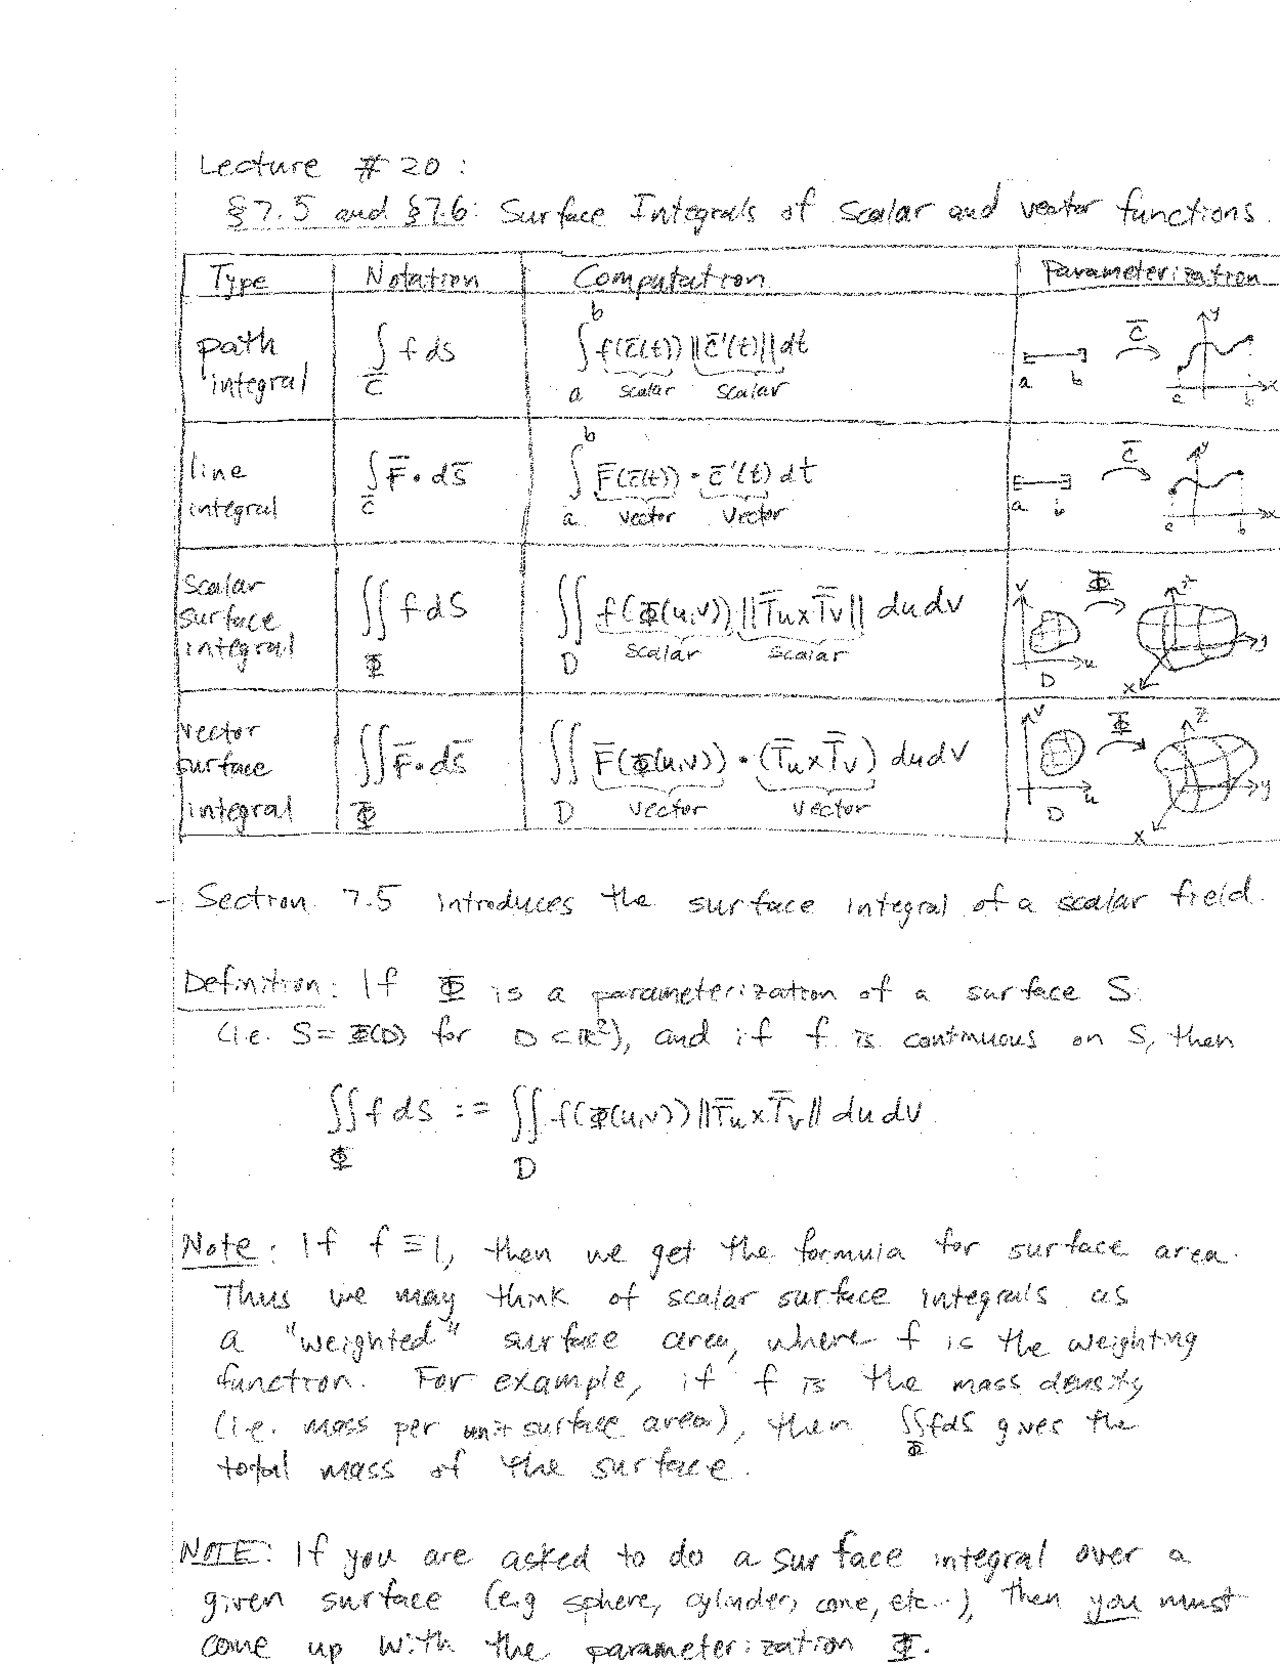 Lecture # 20 :
§7.5 and §7.6: Surface Integrals of scalar and vector functions.
Type | Notation | Computation | Parameterization
path integral | ∫_c̄ f ds | ∫_a^b f(c̄(t)) ||c̄'(t)|| dt | a b c̄ y x a b
scalar scalar
line integral | ∫_c̄ F̄ • ds̄ | ∫_a^b F̄(c̄(t)) • c̄'(t) dt | a b c̄ y x a b
vector vector
scalar surface integral | ∬_Φ f dS | ∬_D f(Φ(u,v)) ||T̄u x T̄v|| du dv | v u D Φ z y x
scalar scalar
vector surface integral | ∬_Φ F̄ • ds̄ | ∬_D F̄(Φ(u,v)) • (T̄u x T̄v) du dv | v u D Φ z y x
vector vector
- Section 7.5 introduces the surface integral of a scalar field.
Definition: If Φ is a parameterization of a surface S
(i.e. S = Φ(D) for D ⊂ ℝ²), and if f is continuous on S, then
∬_Φ f dS := ∬_D f(Φ(u,v)) ||T̄u x T̄v|| du dv
Note: If f ≡ 1, then we get the formula for surface area.
Thus we may think of scalar surface integrals as
a "weighted" surface area, where f is the weighting
function. For example, if f is the mass density
(i.e. mass per unit surface area), then ∬_Φ f dS gives the
total mass of the surface.
NOTE: If you are asked to do a surface integral over a
given surface (e.g sphere, cylinder, cone, etc...), then you must
come up with the parameterization Φ.